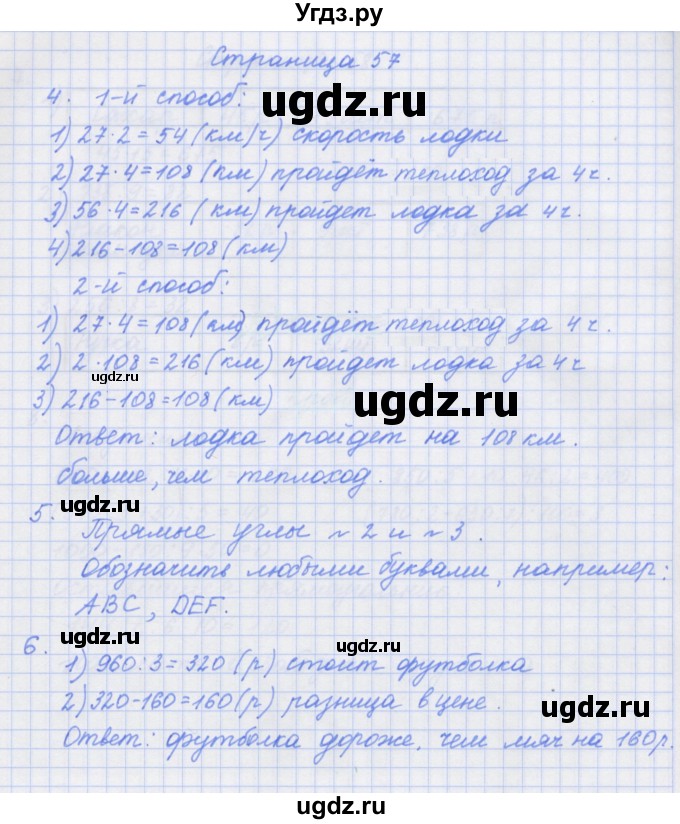 Угдз.ру
Страница 57
4. 1-й способ:
ugdz.ru
1) 27·2=54 (км/ч) скорость лодки
2) 27·4=108 (км) пройдёт теплоход за 4ч.
3) 56·4=216 (км) пройдет лодка за 4ч.
4) 216-108=108 (км)
2-й способ:
1) 27·4=108 (км) пройдёт теплоход за 4ч.
2) 2·108=216 (км) пройдет лодка за 4ч
ugdz.ru
3) 216-108=108 (км)
ugdz.ru
Ответ: лодка пройдет на 108 км.
больше, чем теплоход.
ugdz.ru
5. Прямые углы ~2 и ~3.
Обозначить любыми буквами, например:
ABC, DEF.
ugdz.ru
ugdz.ru
6. 1) 960:3=320 (р) стоит футболка
2) 320-160=160 (р) разница в цене.
ugdz.ru
Ответ: футболка дороже, чем мяч на 160р.
ugdz.ru